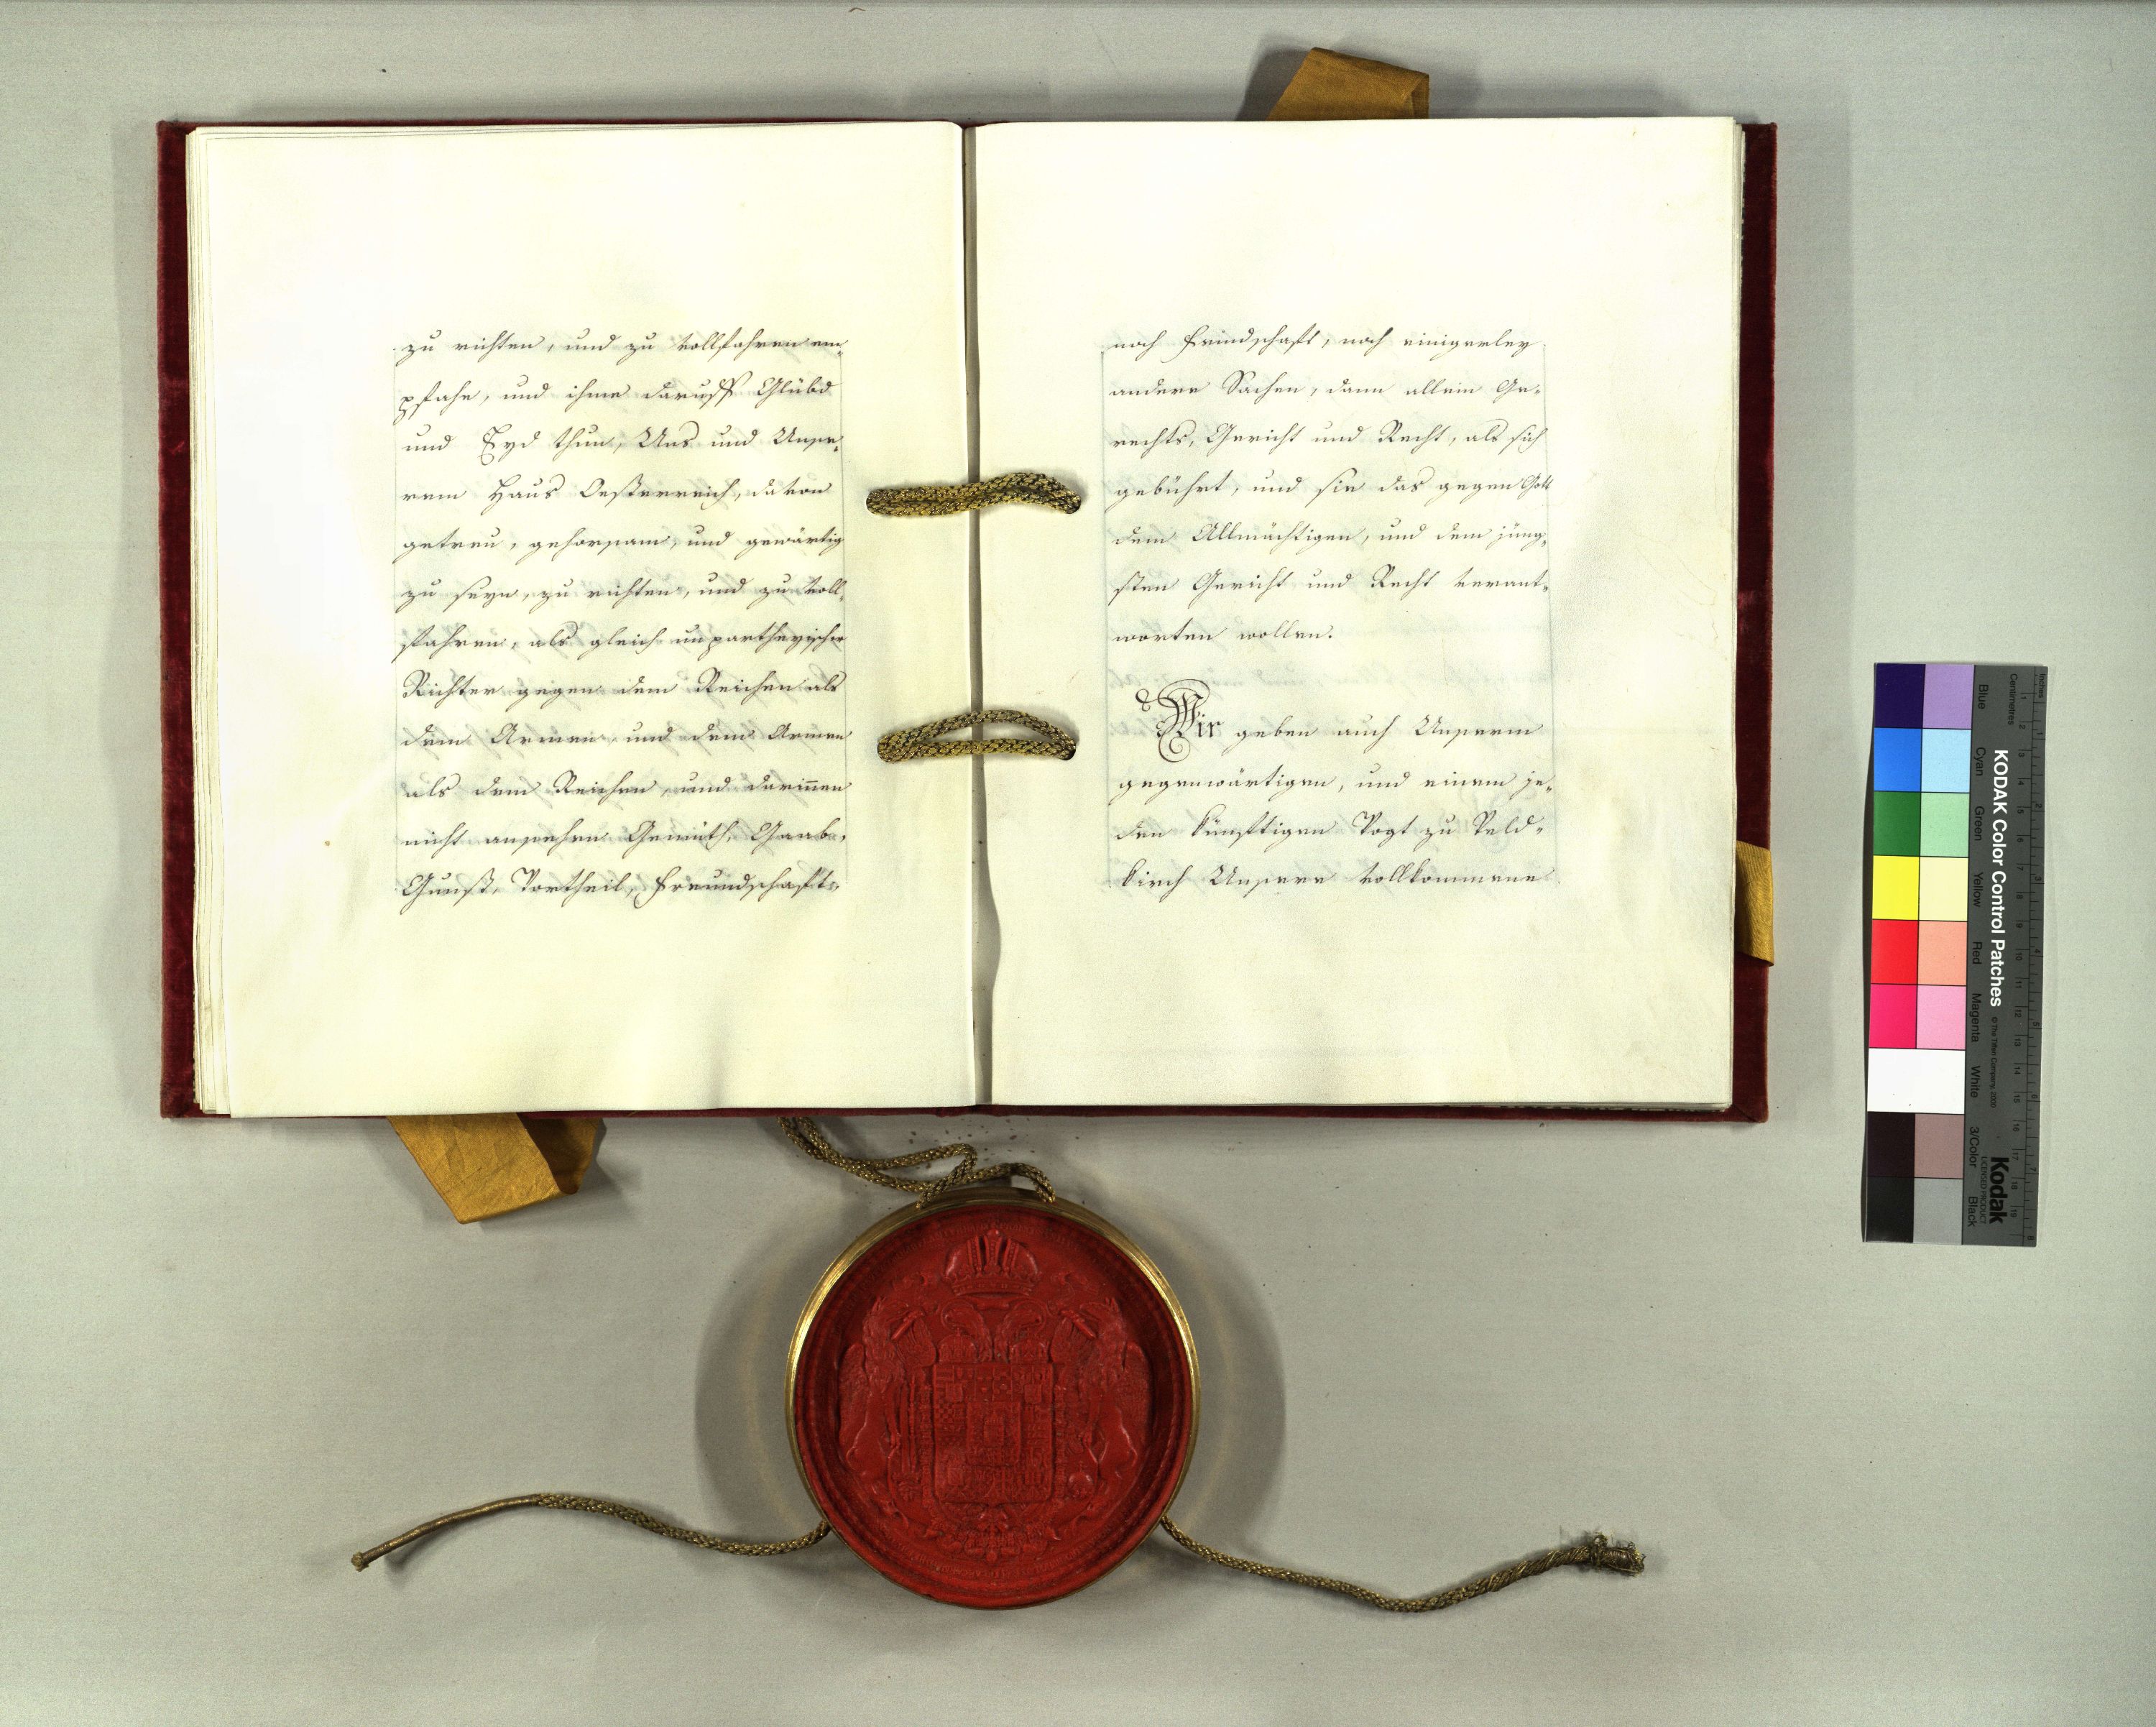 zu richten, und zu vollfahren em-
pfahe, und ihme daruff Glübd
und Eyd thun, Uns und Unse-
rem Haus Oesterreich, davon
getreu, gehorsam, und gewärtig
zu seyn, zu richten, und zu voll-
fahren, als gleich unpartheyischer
Richter gegen dem Reichen als
dem Armen, und dem Armen
als dem Reichen, und dariñen
nicht ansehen Gemüth, Gaab,
Gunst, Vortheil, Freundschaft,
noch Feindschaft, noch einigerley
andere Sachen, dann allein Ge-
rechts, Gericht und Recht, als sich
gebührt, und sie das gegen Gott
dem Allmächtigen, und dem jüng-
sten Gericht und Recht verant-
worten wollen.
Wir geben auch Unserm
gegenwärtigen, und einem je-
den künftigen Vogt zu Veld-
kirch Unsere vollkommene
KODAK Color Control Patches
© The Tiffen Company, 2000
Kodak
LICENSED PRODUCT
Blue Cyan Green Yellow Red Magenta White 3/Color Black
Inches 1 2 3 4 5 6 7 8
Centimetres 1 2 3 4 5 6 7 8 9 10 11 12 13 14 15 16 17 18 19